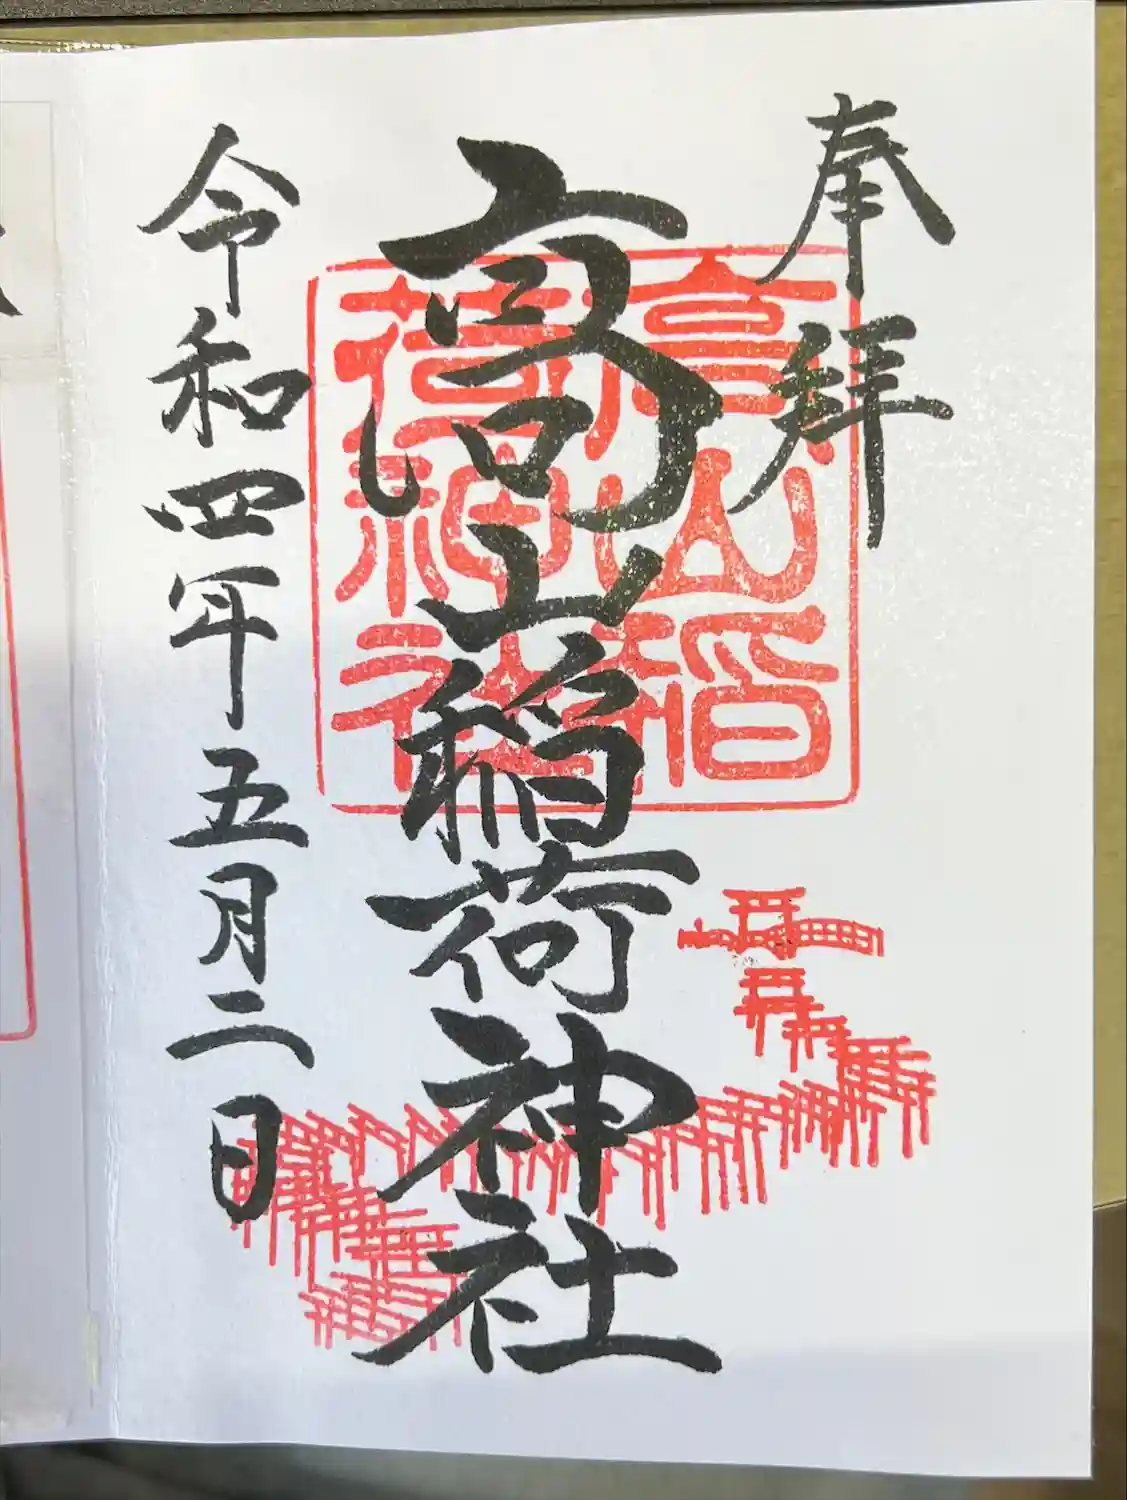 奉拝
高山稲荷神社
高山稲
荷神社
令和四年五月二日